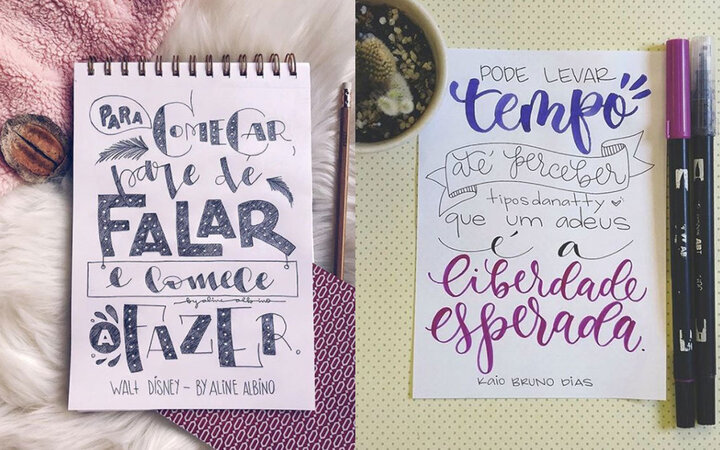 PARA
COMEÇAR,
pare de
FALAR
e comece
by aline albino
A FAZER.
WALT DISNEY – BY ALINE ALBINO
PODE LEVAR
tempo
até perceber
tiposdanatty
que um adeus
é a
liberdade
esperada.
KAIO BRUNO DIAS